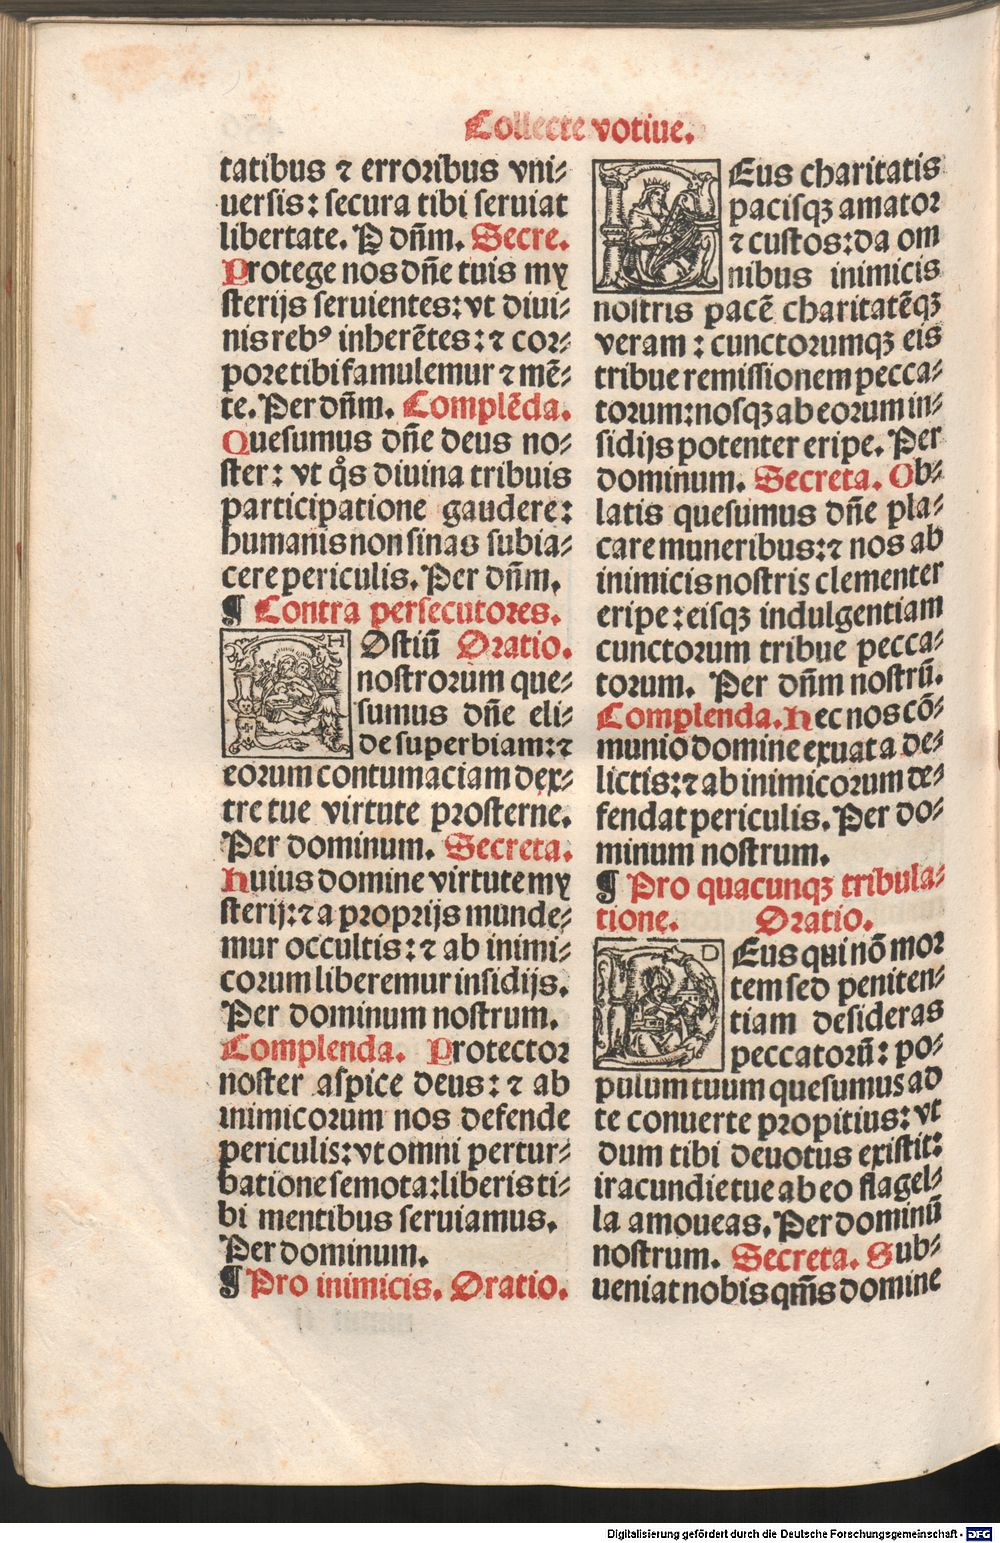 Collecte votiue.
tatibus ⁊ erroribus vni⸗
uersis: secura tibi seruiat
libertate. P dñm. Secre.
Protege nos dñe tuis my
sterijs seruientes: vt diui⸗
nis rebꝰ inherētes: ⁊ cor⸗
pore tibi famulemur ⁊ mē⸗
te. Per dñm. Complēda.
Quesumus dñe deus no⸗
ster: vt q̊s diuina tribuis
participatione gaudere:
humanis non sinas subia⸗
cere periculis. Per dñm.
¶ Contra persecutores.
HOstiū Oratio.
nostrorum que⸗
sumus dñe eli⸗
de superbiam: ⁊
eorum contumaciam dex⸗
tre tue virtute prosterne.
Per dominum. Secreta.
Huius domine virtute my
sterij: ⁊ a proprijs munde⸗
mur occultis: ⁊ ab inimi⸗
corum liberemur insidijs.
Per dominum nostrum.
Complenda. Protector
noster aspice deus: ⁊ ab
inimicorum nos defende
periculis: vt omni pertur⸗
batione semota: liberis ti⸗
bi mentibus seruiamus.
Per dominum.
¶ Pro inimicis. Oratio.
DEus charitatis
pacisqꝫ amator
⁊ custos: da om
nibus inimicis
nostris pacē charitatēqꝫ
veram: cunctorumqꝫ eis
tribue remissionem pecca⸗
torum: nosqꝫ ab eorum in⸗
sidijs potenter eripe. Per
dominum. Secreta. Ob⸗
latis quesumus dñe pla⸗
care muneribus: ⁊ nos ab
inimicis nostris clementer
eripe: eisqꝫ indulgentiam
cunctorum tribue pecca⸗
torum. Per dñm nostrū.
Complenda. Hec nos cō⸗
munio domine exuat a de⸗
lictis: ⁊ ab inimicorum de⸗
fendat periculis. Per do⸗
minum nostrum.
¶ Pro quacunqꝫ tribula⸗
tione. Oratio.
DEus qui nō mor
tem sed peniten⸗
tiam desideras
peccatorū: po⸗
pulum tuum quesumus ad
te conuerte propitius: vt
dum tibi deuotus existit:
iracundie tue ab eo flagel⸗
la amoueas. Per dominū
nostrum. Secreta. Sub⸗
ueniat nobis qm̄s domine
Digitalisierung gefördert durch die Deutsche Forschungsgemeinschaft - DFG